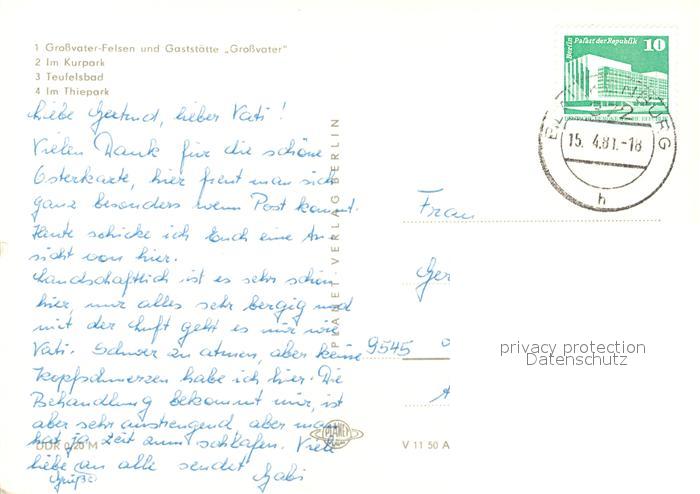 1 Großvater-Felsen und Gaststätte „Großvater"
2 Im Kurpark
3 Teufelsbad
4 Im Thiepark
Liebe Gertrud, lieber Vati!
Vielen Dank für die schöne
Osterkarte, hier freut man sich
ganz besonders wenn Post kommt.
Heute schicke ich Euch eine An
sicht von hier.
Landschaftlich ist es sehr schön
hier, nur alles sehr bergig und
mit der Luft geht es mir wie
Vati. Schwer zu atmen, aber keine
Kopfschmerzen habe ich hier. Die
Behandlung bekommt mir, ist
aber sehr anstrengend, aber man
hat ja Zeit zum schlafen. Viele
liebe Grüße an alle sendet Gabi
DDR 0,20 M
PLANET-VERLAG BERLIN
PLANET
V 11 50 A
Berlin Palast der Republik
10
BLANKENBURG
15. 4.81.-18
h
Frau
Ger
9545
privacy protection
Datenschutz